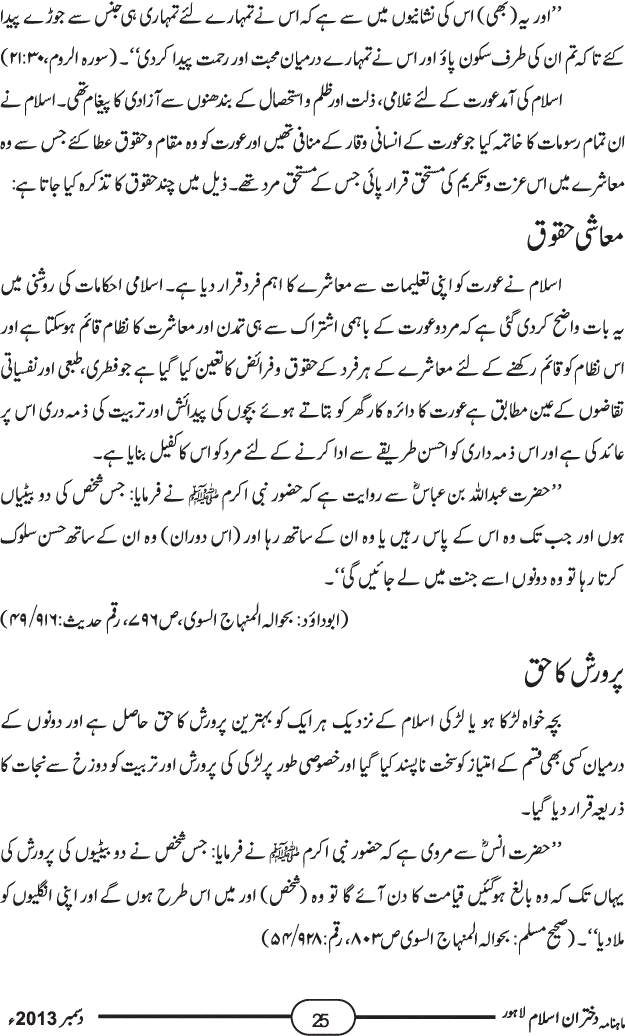 ’’اور یہ (بھی) اس کی نشانیوں میں سے ہے کہ اس نے تمہارے لئے تمہاری ہی جنس سے جوڑے پیدا
کئے تاکہ تم ان کی طرف سکون پاؤ اور اس نے تمہارے درمیان محبت اور رحمت پیدا کردی‘‘۔ (سورہ الروم،۳۰:۲۱)
اسلام کی آمد عورت کے لئے غلامی، ذلت اور ظلم و استحصال کے بندھنوں سے آزادی کا پیغام تھی۔ اسلام نے
ان تمام رسومات کا خاتمہ کیا جو عورت کے انسانی وقار کے منافی تھیں اور عورت کو وہ مقام و حقوق عطا کئے جس سے وہ
معاشرے میں اس عزت و تکریم کی مستحق قرار پائی جس کے مستحق مرد تھے۔ ذیل میں چند حقوق کا تذکرہ کیا جاتا ہے:
معاشی حقوق
اسلام نے عورت کو اپنی تعلیمات سے معاشرے کا اہم فرد قرار دیا ہے۔ اسلامی احکامات کی روشنی میں
یہ بات واضح کردی گئی ہے کہ مرد و عورت کے باہمی اشتراک سے ہی تمدن اور معاشرت کا نظام قائم ہوسکتا ہے اور
اس نظام کو قائم رکھنے کے لئے معاشرے کے ہر فرد کے حقوق و فرائض کا تعین کیا گیا ہے جو فطری، طبعی اور نفسیاتی
تقاضوں کے عین مطابق ہے عورت کا دائرہ کار گھر کو بتاتے ہوئے بچوں کی پیدائش اور تربیت کی ذمہ دری اس پر
عائد کی ہے اور اس ذمہ داری کو احسن طریقے سے ادا کرنے کے لئے مرد کو اس کا کفیل بنایا ہے۔
’’حضرت عبداللہ بن عباسؓ سے روایت ہے کہ حضور نبی اکرم ﷺ نے فرمایا: جس شخص کی دو بیٹیاں
ہوں اور جب تک وہ اس کے پاس رہیں یا وہ ان کے ساتھ رہا اور (اس دوران) وہ ان کے ساتھ حسن سلوک
کرتا رہا تو وہ دونوں اسے جنت میں لے جائیں گی‘‘۔
(ابوداؤد: بحوالہ المنہاج السوی،ص۷۹۶، رقم حدیث:۹۱۶/۴۹)
پرورش کا حق
بچہ خواہ لڑکا ہو یا لڑکی اسلام کے نزدیک ہر ایک کو بہترین پرورش کا حق حاصل ہے اور دونوں کے
درمیان کسی بھی قسم کے امتیاز کو سخت ناپسند کیا گیا اور خصوصی طور پر لڑکی کی پرورش اور تربیت کو دوزخ سے نجات کا
ذریعہ قرار دیا گیا۔
’’حضرت انسؓ سے مروی ہے کہ حضور نبی اکرم ﷺ نے فرمایا: جس شخص نے دو بیٹیوں کی پرورش کی
یہاں تک کہ وہ بالغ ہوگئیں قیامت کا دن آئے گا تو وہ (شخص) اور میں اس طرح ہوں گے اور اپنی انگلیوں کو
ملا دیا‘‘۔ (صحیح مسلم: بحوالہ المنہاج السوی ص۸۰۳، رقم:۹۲۸/۵۴)
ماہنامہ دختران اسلام لاہور 25 دسمبر 2013ء